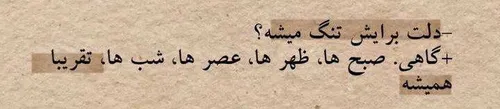 -دلت برایش تنگ میشه؟
+گاهی. صبح ها، ظهر ها، عصر ها، شب ها، تقریبا
همیشه